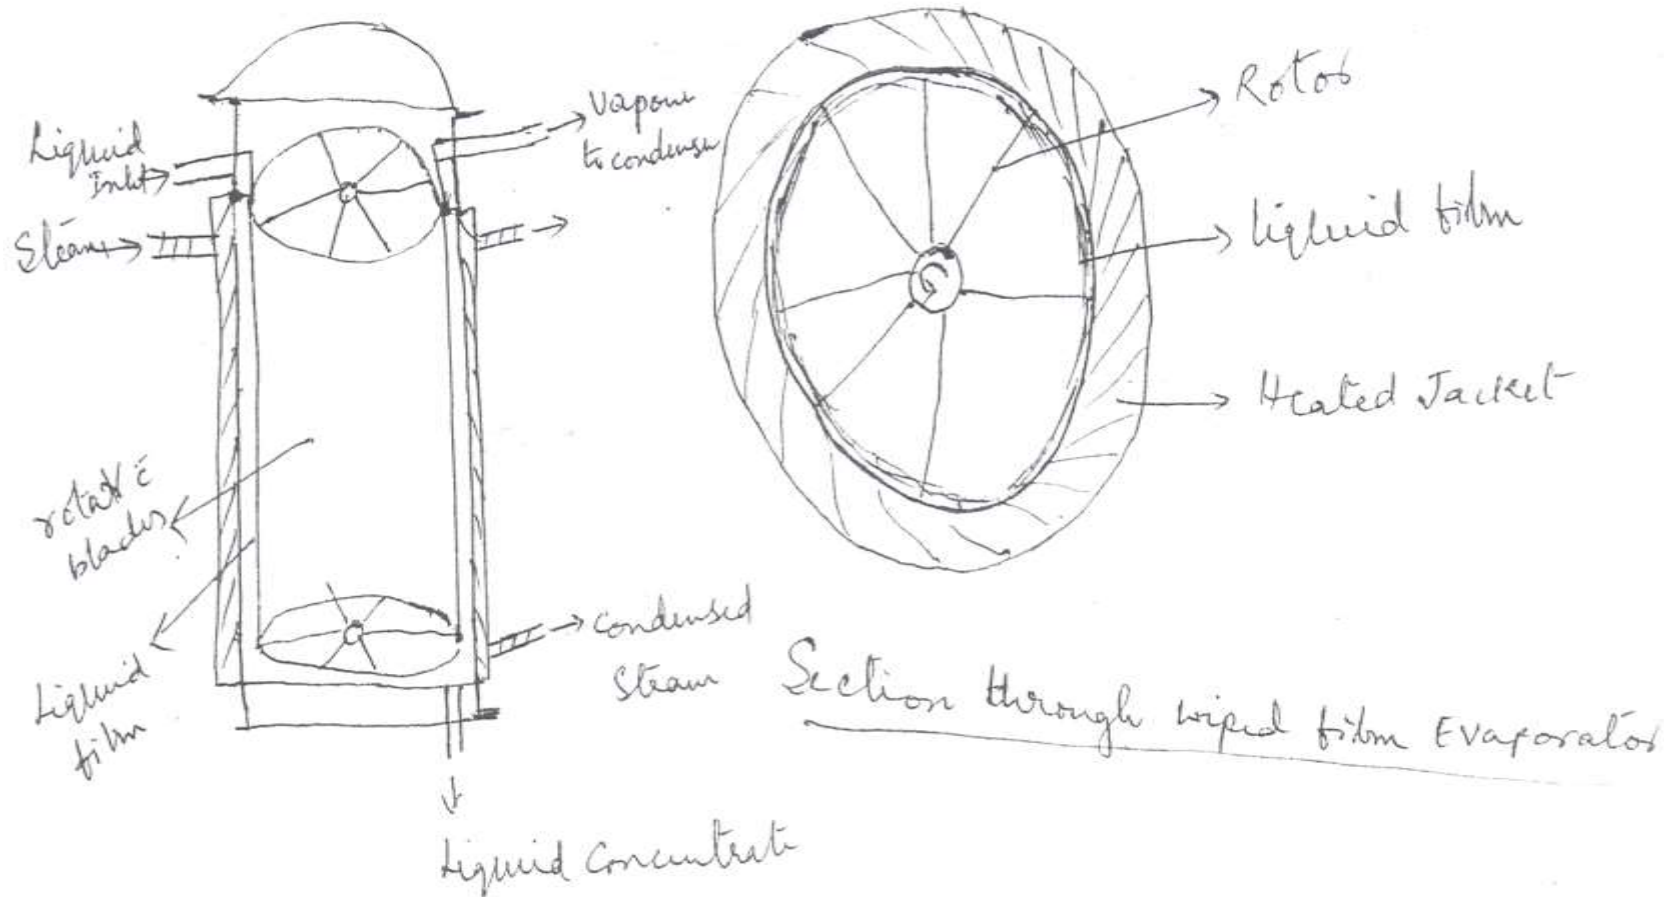 Liquid
Inlet
Steam
Vapour
to condenser
rotor c̄
blades
Liquid
film
Condensed
Steam
Liquid Concentrate
Rotor
liquid film
Heated Jacket
Section through wiped film Evaporator